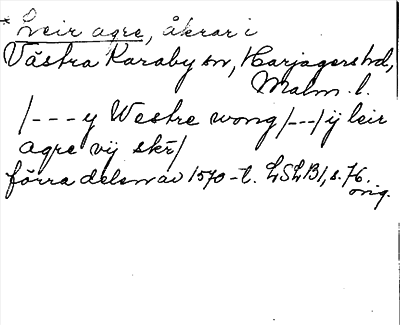 * Leir agre, åkrar i
Västra Karaby sn, Harjagers hd,
Malm. l.
/--- y Westre wong /--/ ij leir
agre vij skr̄/
förra delen av 1570-t. LSLB1, s. 76.
orig.